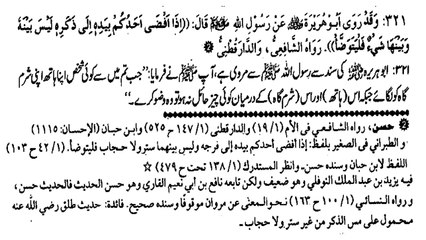 ٣٢١: وَقَدْ رَوَى أَبُوهُرَيْرَةَ ﷺ عَنْ رَسُوْلِ اللهِ ﷺ قَالَ: ((إِذَا أَفْضَى أَحَدُكُمْ بِيَدِهِ إِلَى ذَكَرِهِ لَيْسَ بَيْنَهُ
وَبَيْنَهَا شَيْءٌ فَلْيَتَوَضَّأْ)). رَوَاهُ الشَّافِعِيُّ، وَالدَّارَقُطْنِيُّ
٣٢١: ابو ہریرہ کی سند سے رسول اللہ ﷺ سے مروی ہے، آپ ﷺ نے فرمایا: "جب تم میں سے کوئی شخص اپنا ہاتھ اپنی شرم
گاہ کو لگائے جبکہ اس (ہاتھ) اور اس (شرم گاہ) کے درمیان کوئی چیز حائل نہ ہو تو وہ وضو کرے۔"
حسن، رواه الشافعي في الأم (١/ ١٩) والدارقطني (١/ ١٤٧ ح ٥٢٥) وابن حبان (الإحسان: ١١١٥)
و الطبراني في الصغير بلفظ: إذا أفضى أحدكم بيده إلى فرجه وليس بينهما ستر ولا حجاب فليتوضأ. (١/ ٤٢ ح ١٠٣)
اللفظ لابن حبان وسنده حسن. وانظر المستدرك (١/ ١٣٨ تحت ح ٤٧٩) ☆
فيه يزيد بن عبد الملك النوفلي وهو ضعيف ولكن تابعه نافع بن أبي نعيم القاري وهو حسن الحديث فالحديث حسن،
و رواه النسائي (١/ ١٠٠ ح ١٦٣) نحو المعنى عن مروان موقوفًا وسنده صحيح. فائدة: حديث طلق رضي الله عنه
محمول على مس الذكر من غير ستر ولا حجاب.